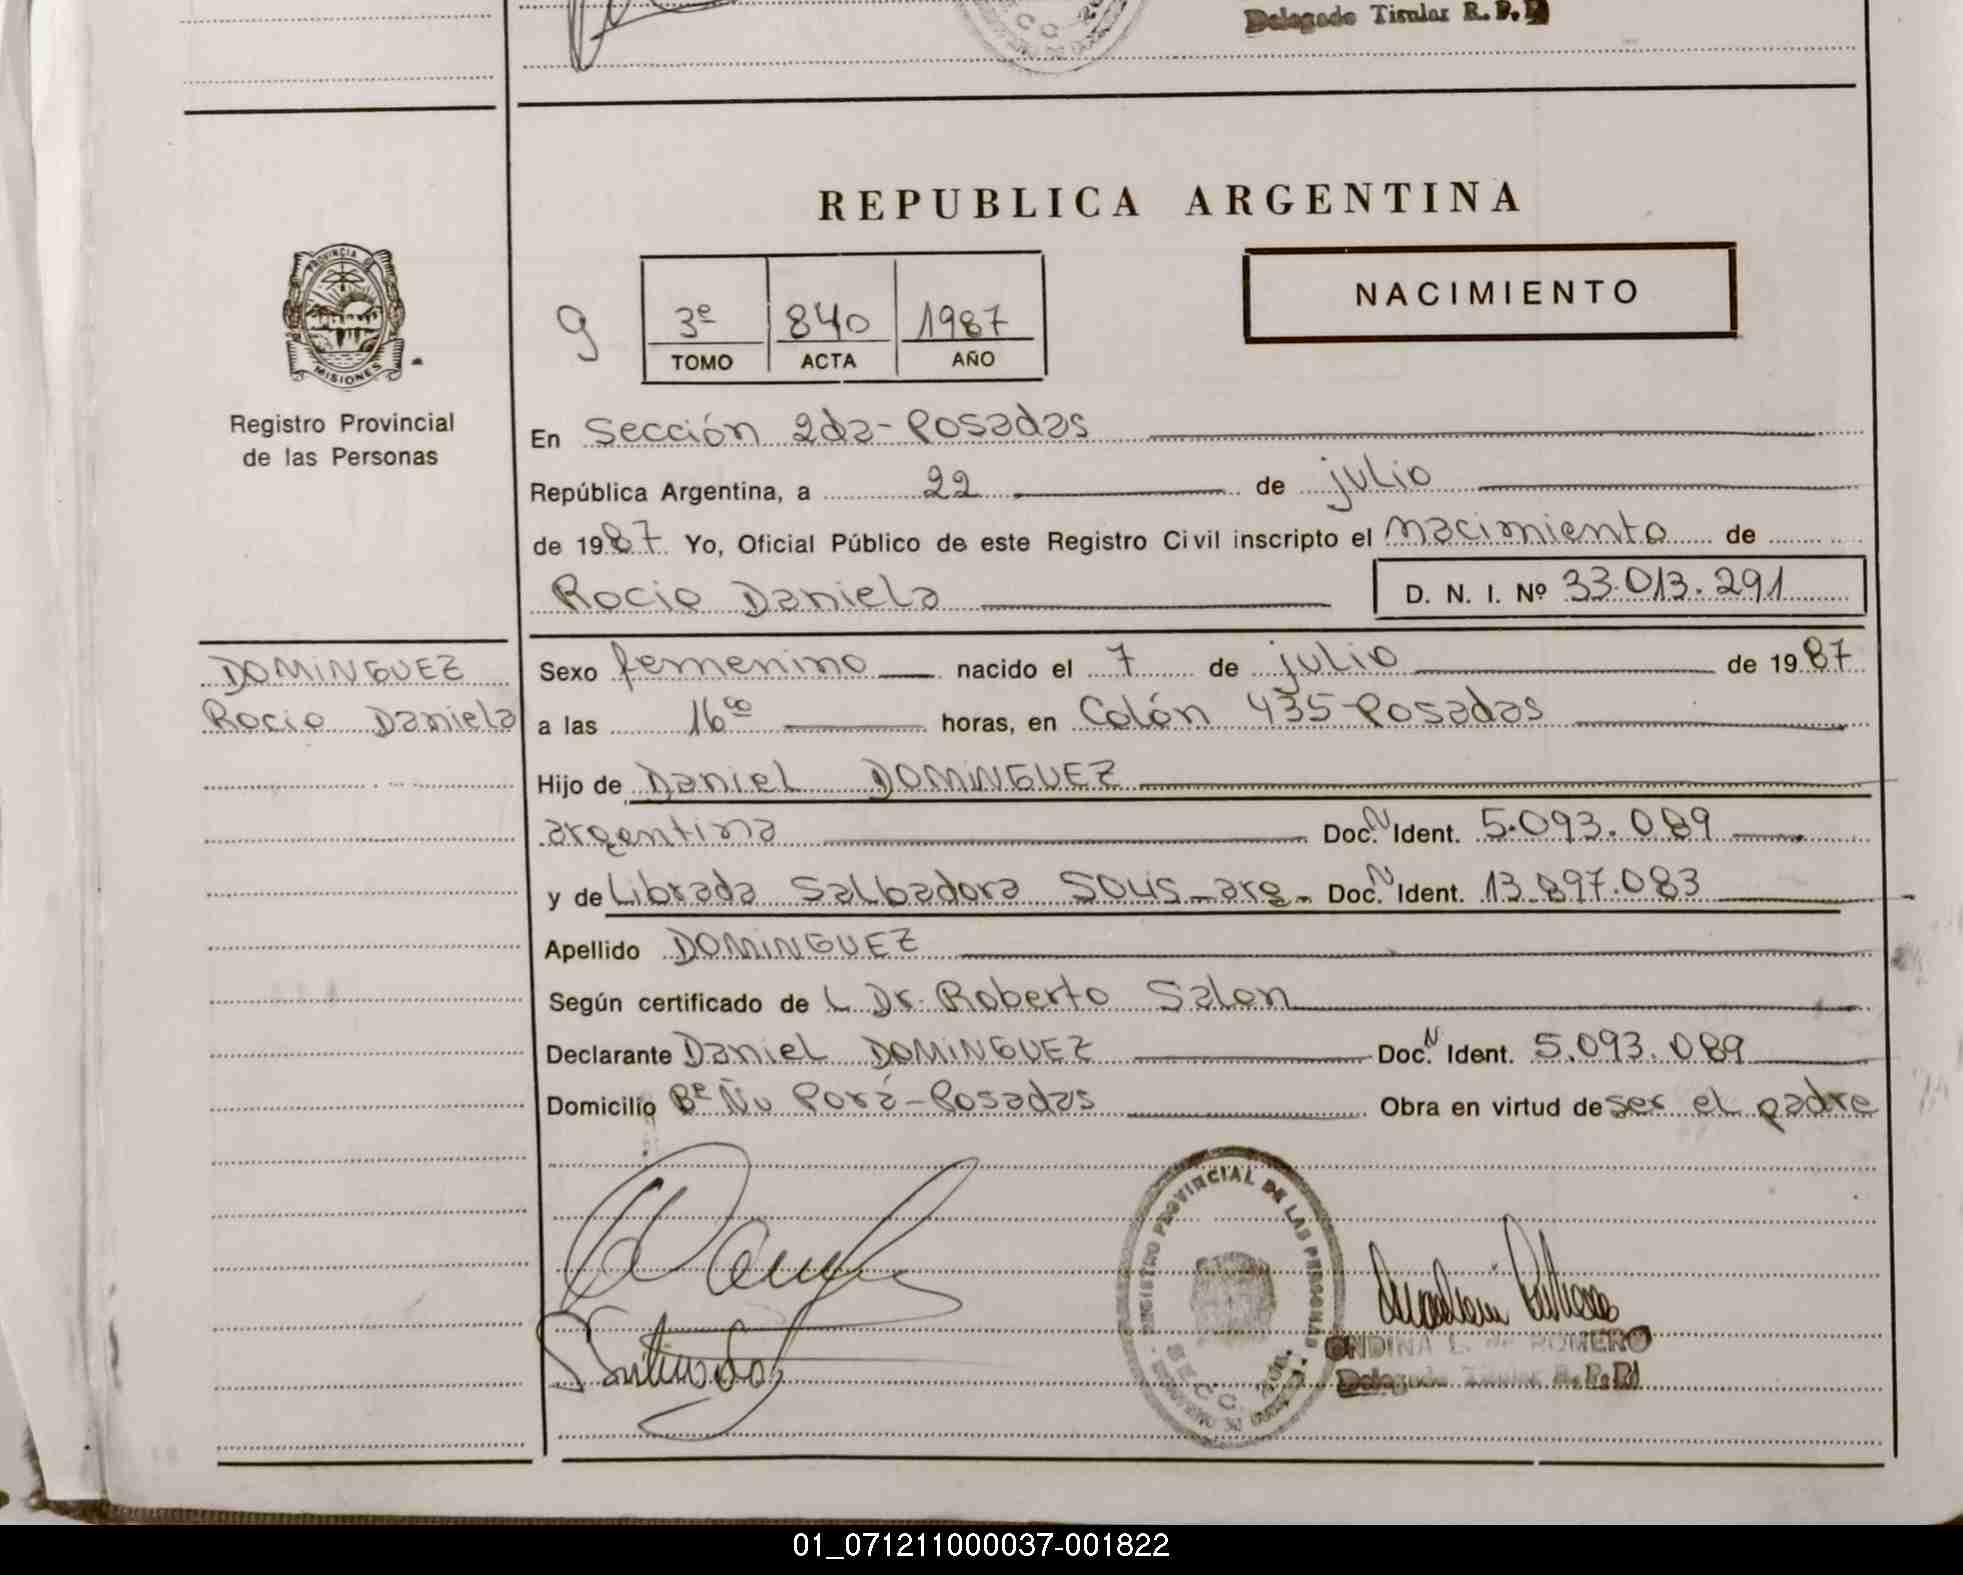 Delegado Titular R.P.P
REPUBLICA ARGENTINA
PROVINCIA DE
MISIONES
Registro Provincial
de las Personas
NACIMIENTO
9
3º 840 1987
TOMO ACTA AÑO
En Sección 2da-Posadas
República Argentina, a 22 de julio
de 1987 Yo, Oficial Público de este Registro Civil inscripto el nacimiento de
Rocio Daniela D. N. I. Nº 33.013.291
DOMINGUEZ
Rocio Daniela
Sexo femenino nacido el 7 de julio de 1987
a las 16⁰⁰ horas, en Colón 435-Posadas
Hijo de Daniel DOMINGUEZ
argentina Doc. N Ident. 5.093.089
y de Librada Salbadora SOLIS-arg. Doc. N Ident. 13.897.083
Apellido DOMINGUEZ
Según certificado de L Dr. Roberto Salon
Declarante Daniel DOMINGUEZ Doc. N Ident. 5.093.089
Domicilio Bº Ñu Porá-Posadas Obra en virtud de ser el padre
REGISTRO PROVINCIAL DE LAS PERSONAS
SECC. 2da.
ONDINA L. de ROMERO
Delegado Titular R.P.P
01_071211000037-001822